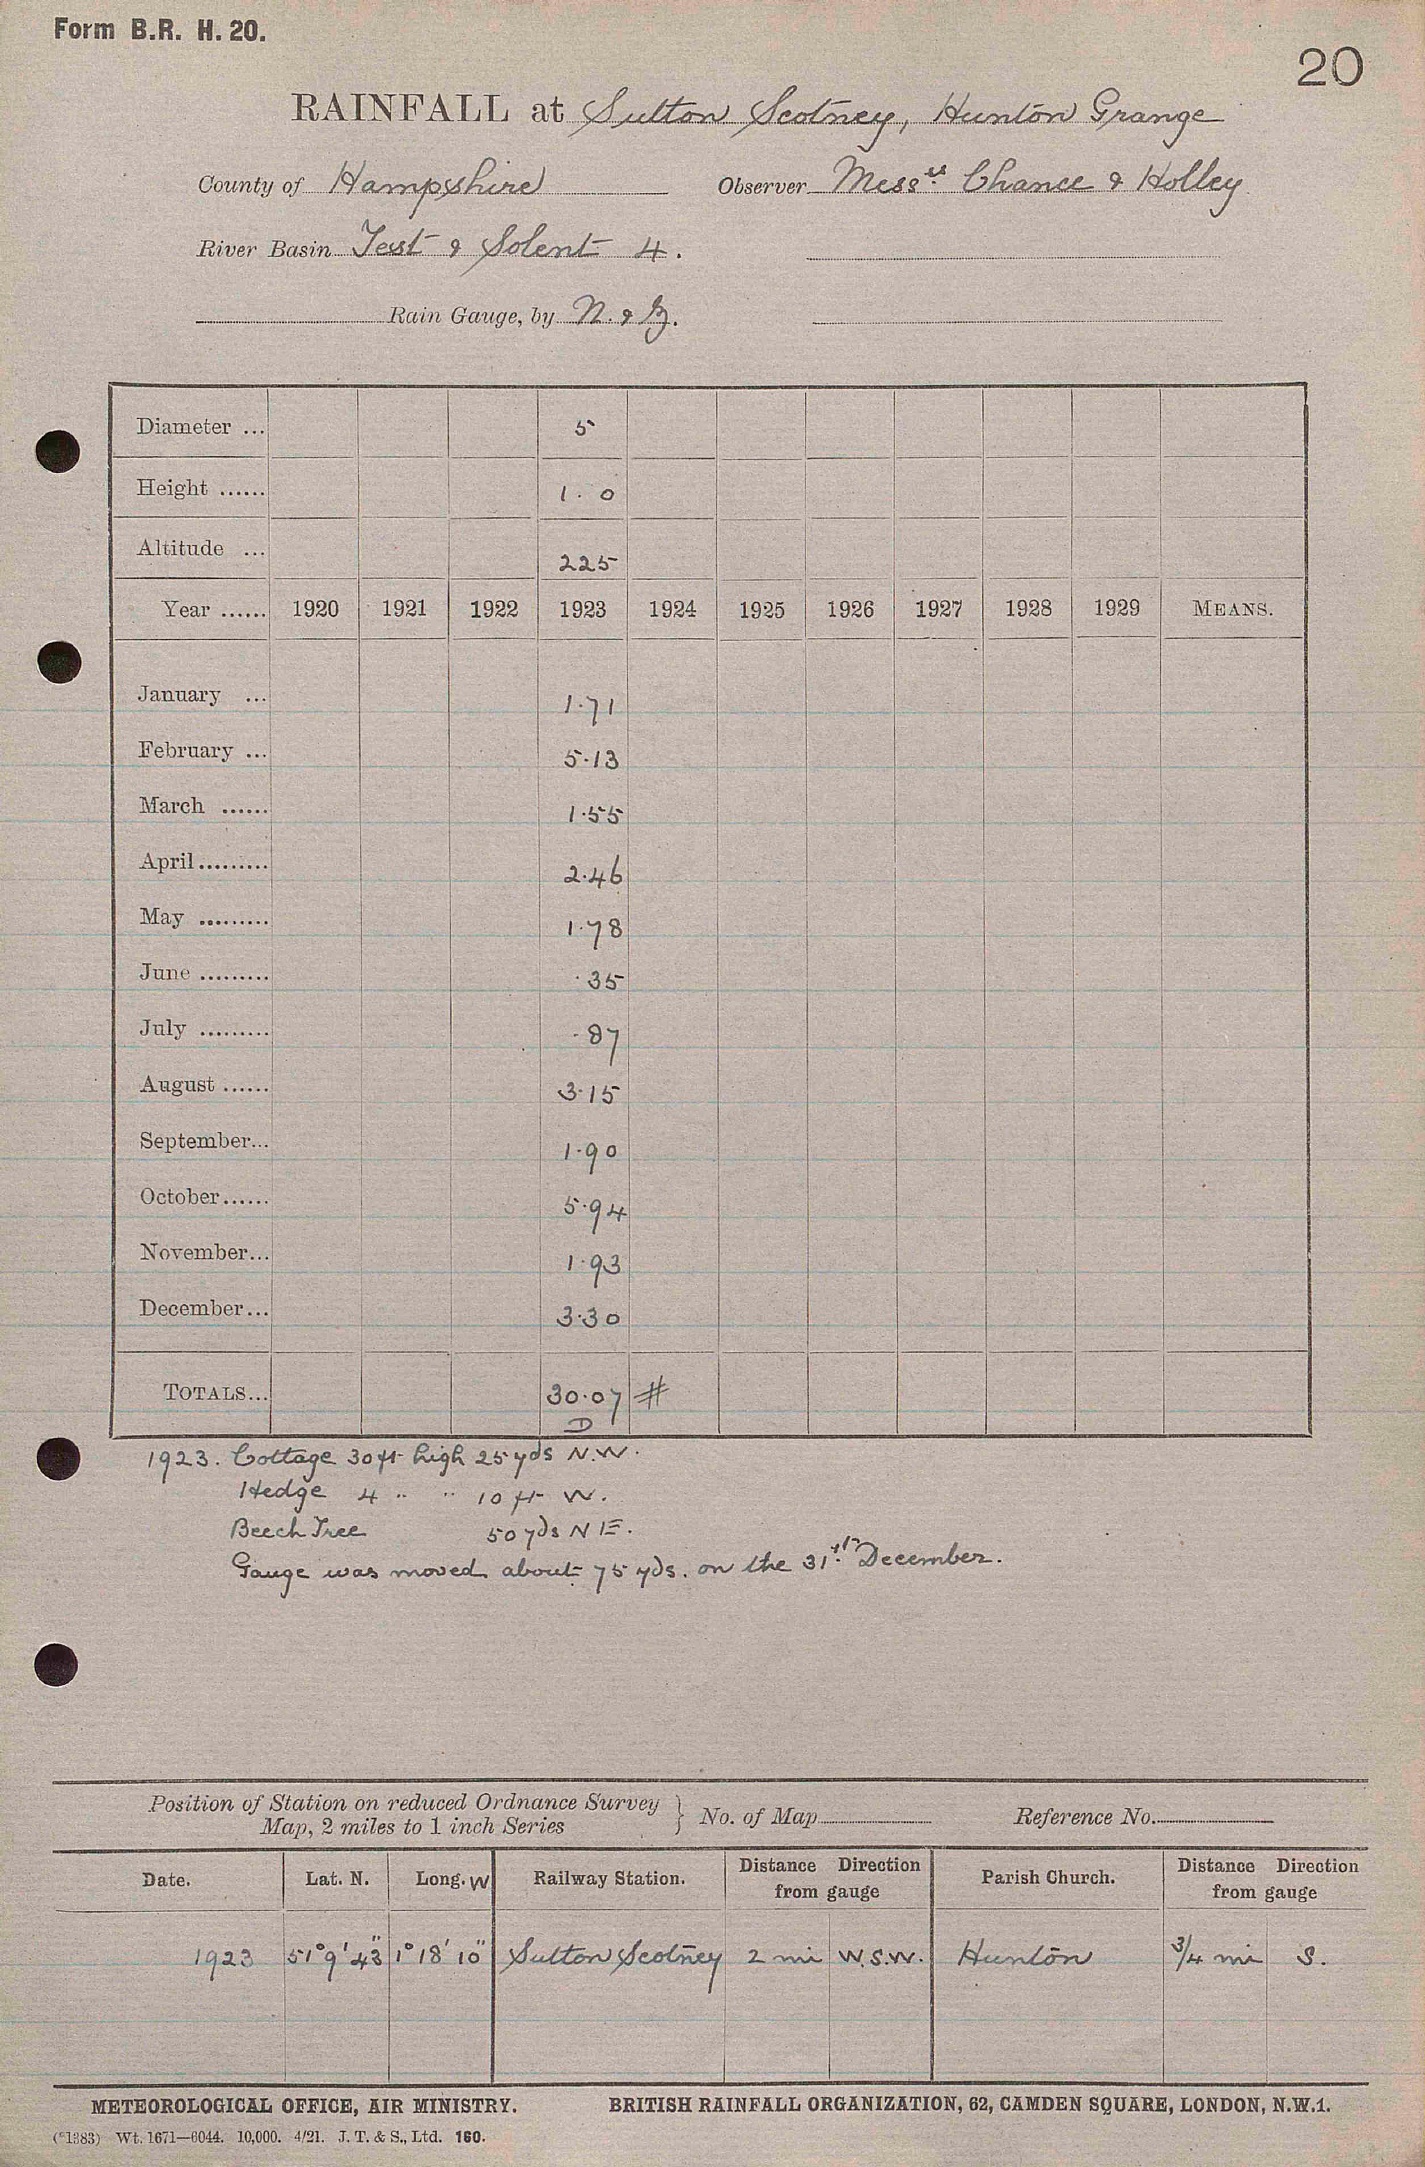 Form B.R. H. 20.
20
RAINFALL at Sutton Scotney, Hunton Grange
County of Hampshire Observer Messrs. Chance & Holley
River Basin Test & Solent 4.
Rain Gauge, by N. & Z.
Diameter ... 5
Height ...... 1. 0
Altitude ... 225
Year ...... 1920 1921 1922 1923 1924 1925 1926 1927 1928 1929 MEANS.
January ... 1.71
February ... 5.13
March ...... 1.55
April......... 2.46
May ......... 1.78
June ......... .35
July ......... .87
August ...... 3.15
September... 1.90
October...... 5.94
November... 1.93
December... 3.30
TOTALS... 30.07 #
D
1923. Cottage 30 ft high 25 yds N.W.
Hedge 4 " " 10 ft W.
Beech Tree 50 yds N E.
Gauge was moved about 75 yds. on the 31st. December.
Position of Station on reduced Ordnance Survey
Map, 2 miles to 1 inch Series } No. of Map Reference No.
Date. Lat. N. Long. W Railway Station. Distance Direction from gauge Parish Church. Distance Direction from gauge
1923 51° 9' 43" 1° 18' 10" Sutton Scotney 2 mi W.S.W. Hunton 3/4 mi S.
METEOROLOGICAL OFFICE, AIR MINISTRY. BRITISH RAINFALL ORGANIZATION, 62, CAMDEN SQUARE, LONDON, N.W.1.
(*1383) Wt. 1671—6044. 10,000. 4/21. J. T. & S., Ltd. 160.